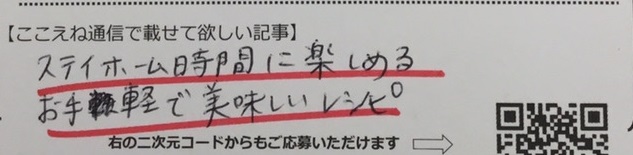 【ここえね通信で載せて欲しい記事】
ステイホーム時間に楽しめる
お手軽で美味しいレシピ
右の二次元コードからもご応募いただけます